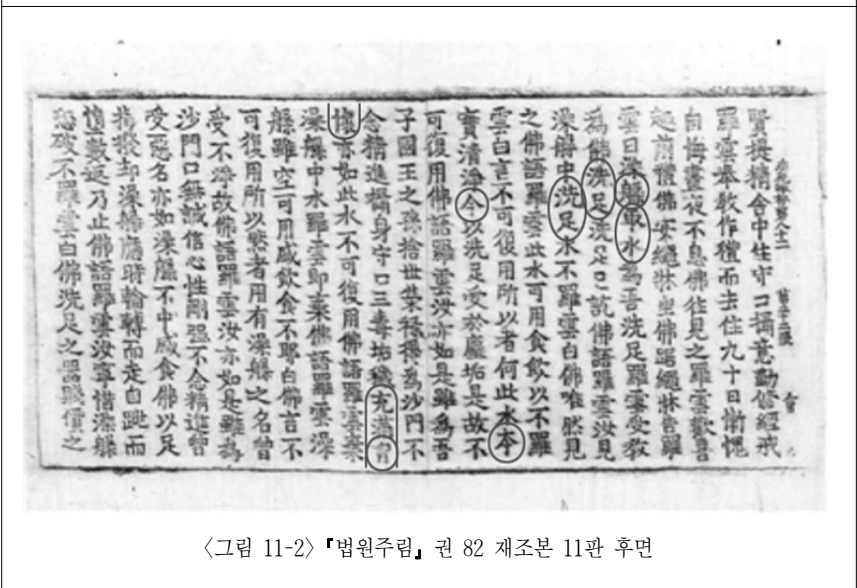 賢提精舍中住守口攝意勤修經戒
羅雲奉敎作禮而去住九十日慚愧
自悔晝夜不息佛往見之羅雲歡喜
趣前禮佛安繩牀坐佛踞繩牀告羅
雲曰澡槃取水爲吾洗足羅雲受敎
爲佛洗足洗足已訖佛語羅雲汝見
澡槃中洗足水不羅雲白佛唯然見
之佛語羅雲此水可用食飮以不羅
雲白言不可復用所以者何此水本
實清淨今以洗足受於塵垢是故不
可復用佛語羅雲汝亦如是雖爲吾
子國王之孫捨世榮祿得爲沙門不
念精進攝身守口三毒垢穢充滿胷
懷亦如此水不可復用佛語羅雲棄
澡槃中水羅雲即棄佛語羅雲澡
槃雖空可用盛飮食不耶白佛言不
可復用所以然者用有澡槃之名曾
受不淨故佛語羅雲汝亦如是雖爲
沙門口無誠信心性剛强不念精進曾
受惡名亦如澡槃不中盛食佛以足
指撥却澡槃應時輪轉而走自跳而
墮數返乃止佛語羅雲汝寧惜澡槃
恐破不羅雲白佛洗足之器賤價之
〈그림 11-2〉『법원주림』 권 82 재조본 11판 후면